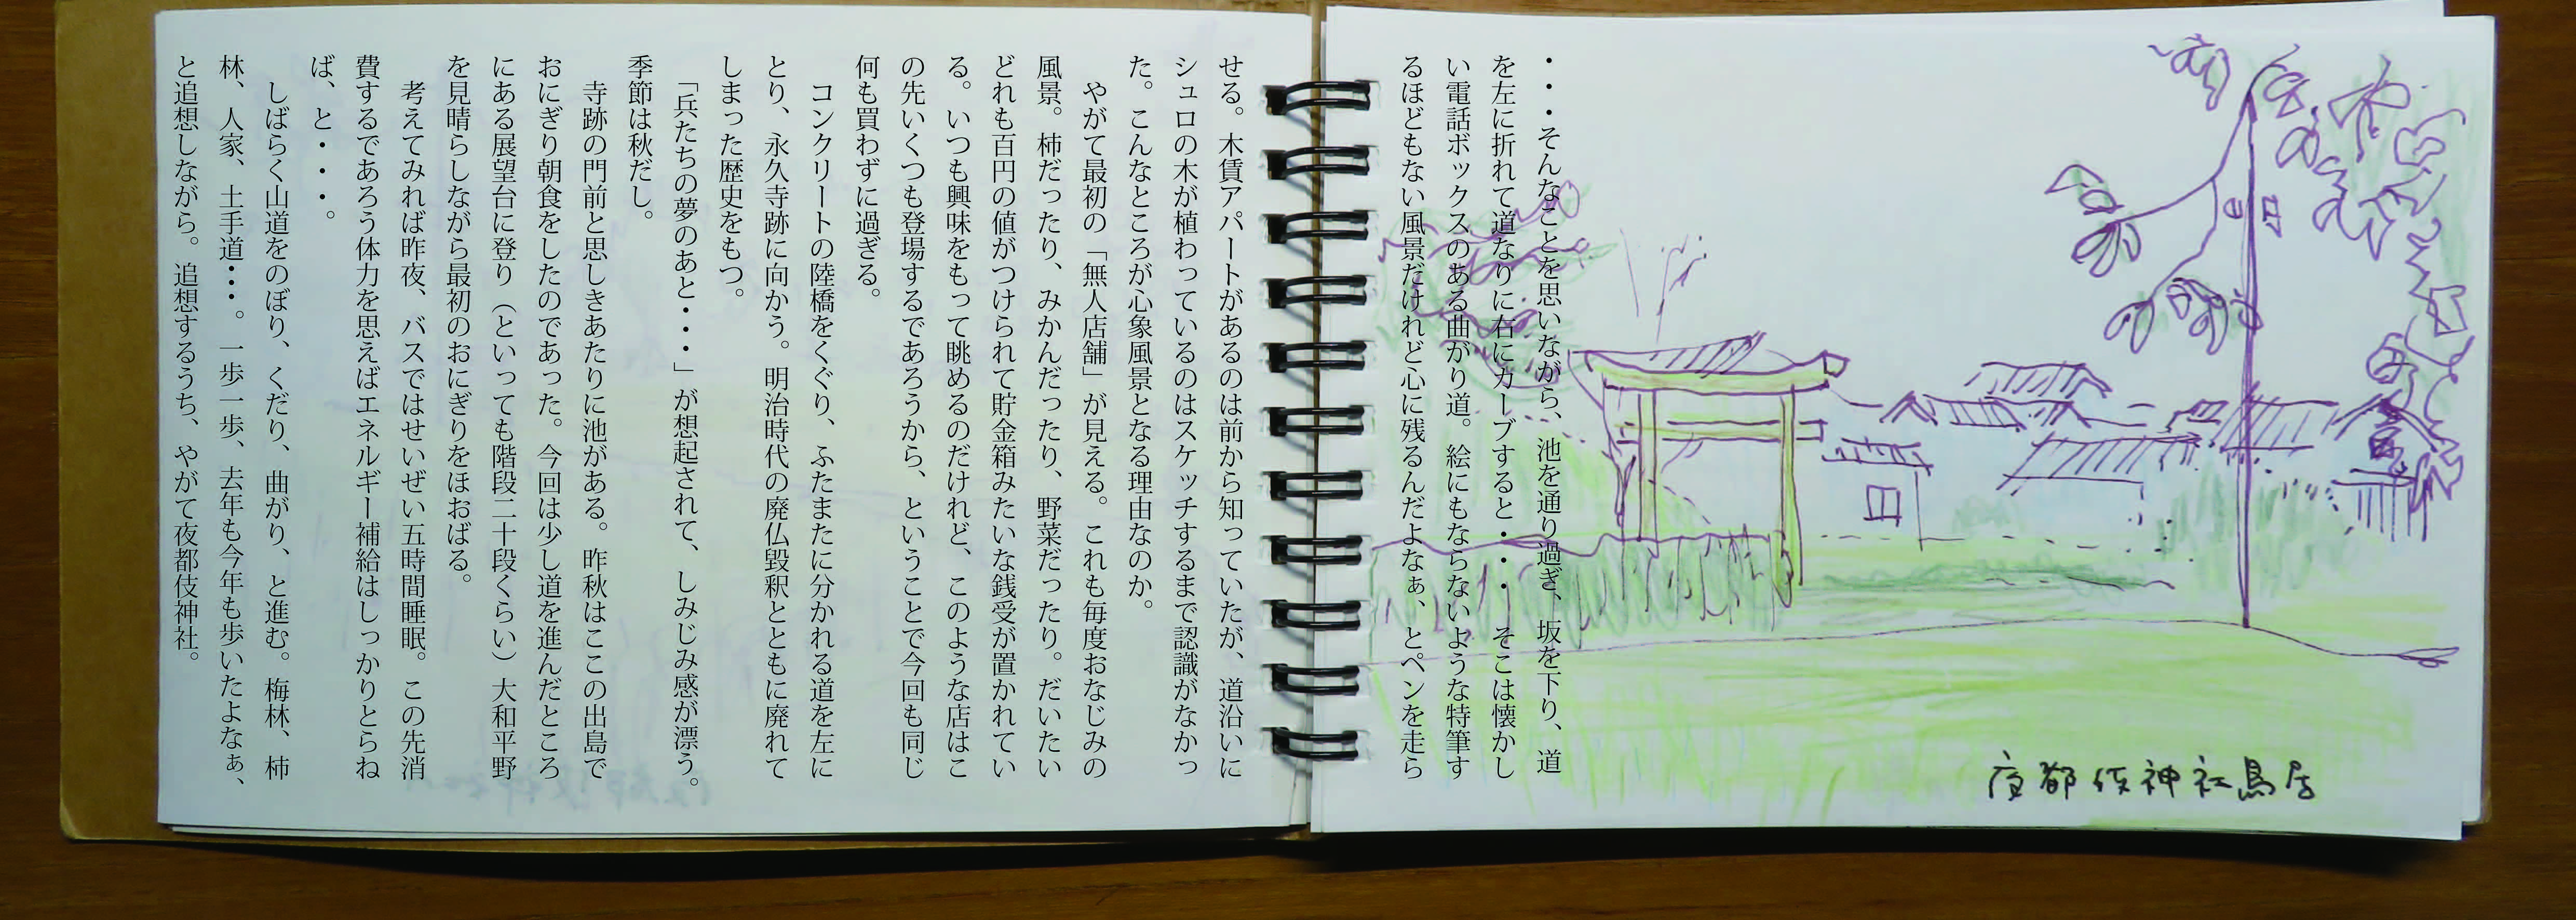 ・・・そんなことを思いながら、池を通り過ぎ、坂を下り、道
を左に折れて道なりに右にカーブすると・・・　そこは懐かし
い電話ボックスのある曲がり道。絵にもならないような特筆す
るほどもない風景だけれど心に残るんだよなぁ、とペンを走ら
せる。木賃アパートがあるのは前から知っていたが、道沿いに
シュロの木が植わっているのはスケッチするまで認識がなかっ
た。こんなところが心象風景となる理由なのか。
やがて最初の「無人店舗」が見える。これも毎度おなじみの
風景。柿だったり、みかんだったり、野菜だったり。だいたい
どれも百円の値がつけられて貯金箱みたいな銭受が置かれてい
る。いつも興味をもって眺めるのだけれど、このような店はこ
の先いくつも登場するであろうから、ということで今回も同じ
何も買わずに過ぎる。
コンクリートの陸橋をくぐり、ふたまたに分かれる道を左に
とり、永久寺跡に向かう。明治時代の廃仏毀釈とともに廃れて
しまった歴史をもつ。
「兵たちの夢のあと・・・」が想起されて、しみじみ感が漂う。
季節は秋だし。
寺跡の門前と思しきあたりに池がある。昨秋はここの出島で
おにぎり朝食をしたのであった。今回は少し道を進んだところ
にある展望台に登り（といっても階段二十段くらい）大和平野
を見晴らしながら最初のおにぎりをほおばる。
考えてみれば昨夜、バスではせいぜい五時間睡眠。この先消
費するであろう体力を思えばエネルギー補給はしっかりとらね
ば、と・・・。
しばらく山道をのぼり、くだり、曲がり、と進む。梅林、柿
林、人家、土手道・・・。一歩一歩、去年も今年も歩いたよなぁ、
と追想しながら。追想するうち、やがて夜都伎神社。
夜都伎神社鳥居